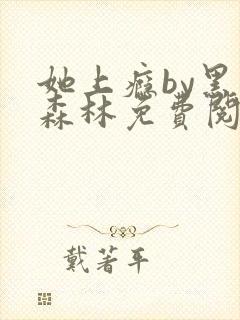 她上瘾by黑
森林免费阅
戴著平